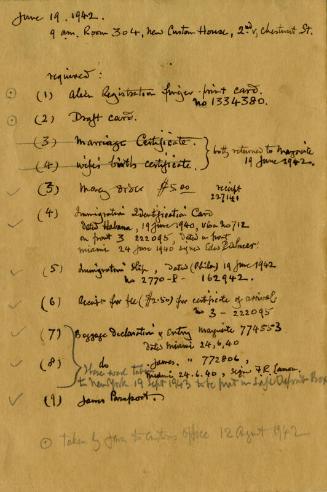 June 19. 1942.
9 am. Room 304, New Custom House, 2nd & Chestnut St.
required:
(1) Alien Registration finger-print card.
no 1334380.
(2) Draft card.
(3) Marriage Certificate.
(4) wife's birth certificate.
both returned to Marguite
19 June 1942.
(3) Money order $5.00 receipt
227141
(4) Immigration Identification Card
Dated Habana, 19 June 1940, visa no 712
on front 3 222095, dated on front
Miami 24 June 1940 signed
(5) Immigration Slip, dated (Phila) 19 June 1942
no 2770-P- 162942.
(6) Receipt for fee ($2.50) for certificate of arrival
no 3-222095
(7) Baggage Declaration & Entry Marguite 774553
dated Miami 24,6,40
(8) do James. " 772806,
Miami 24.6.40, sign F.R. Canon.
These were taken
to New York 19 Sept 1943 to be put in Safe Deposit Box
(9) James Passport.
taken by James to Customs office 12 August 1942